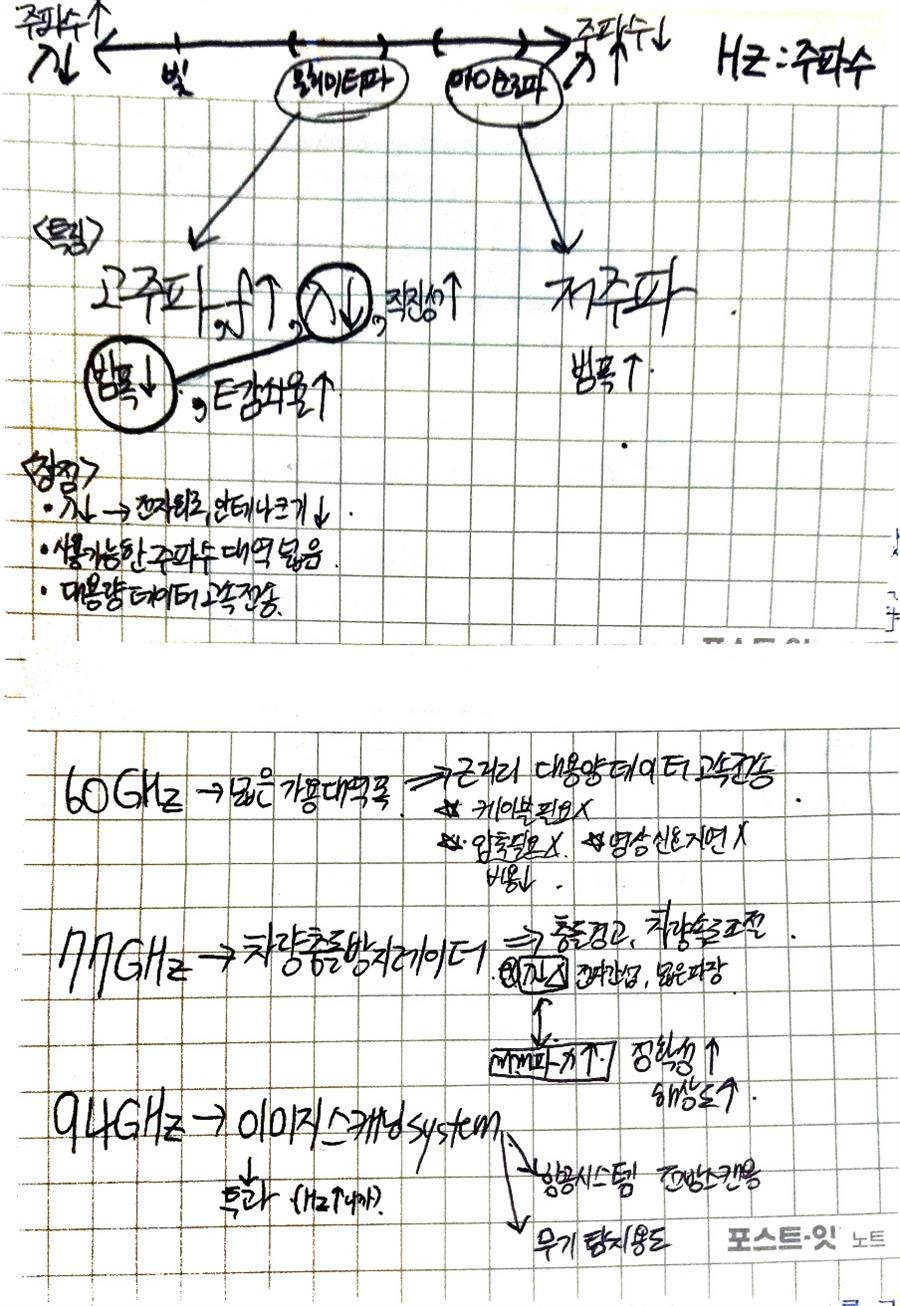 주파수↑ 주파수↓ Hz : 주파수
λ↓ λ↑
빛 밀리미터파 마이크로파
<특징>
고주파, f↑, λ↓, 직진성↑ 저주파
범폭↓, E감쇠율↑ 범폭↑.
<장점>
• λ↓ → 전자회로, 안테나크기↓.
• 사용가능한 주파수 대역 넓음.
• 대용량데이터 고속전송.
포스트-잇
60GHz → 넓은 가용대역폭. ⇒ 근거리 대용양데이터 고속전송.
☆ 케이블필요X
☆. 압축필요X. ☆ 영상신호지연X
비용↓.
77GHz → 차량충돌방지레이더 ⇒ 충돌경고, 차량속도조절.
전파간섭, 넓은파장
mm파-λ↑. 정확성↑
해상도↑.
94GHz → 이미지스캐닝system
투과 (Hz↑니까). 항공시스템 전방스캔용
무기 탐지용도
포스트-잇 노트